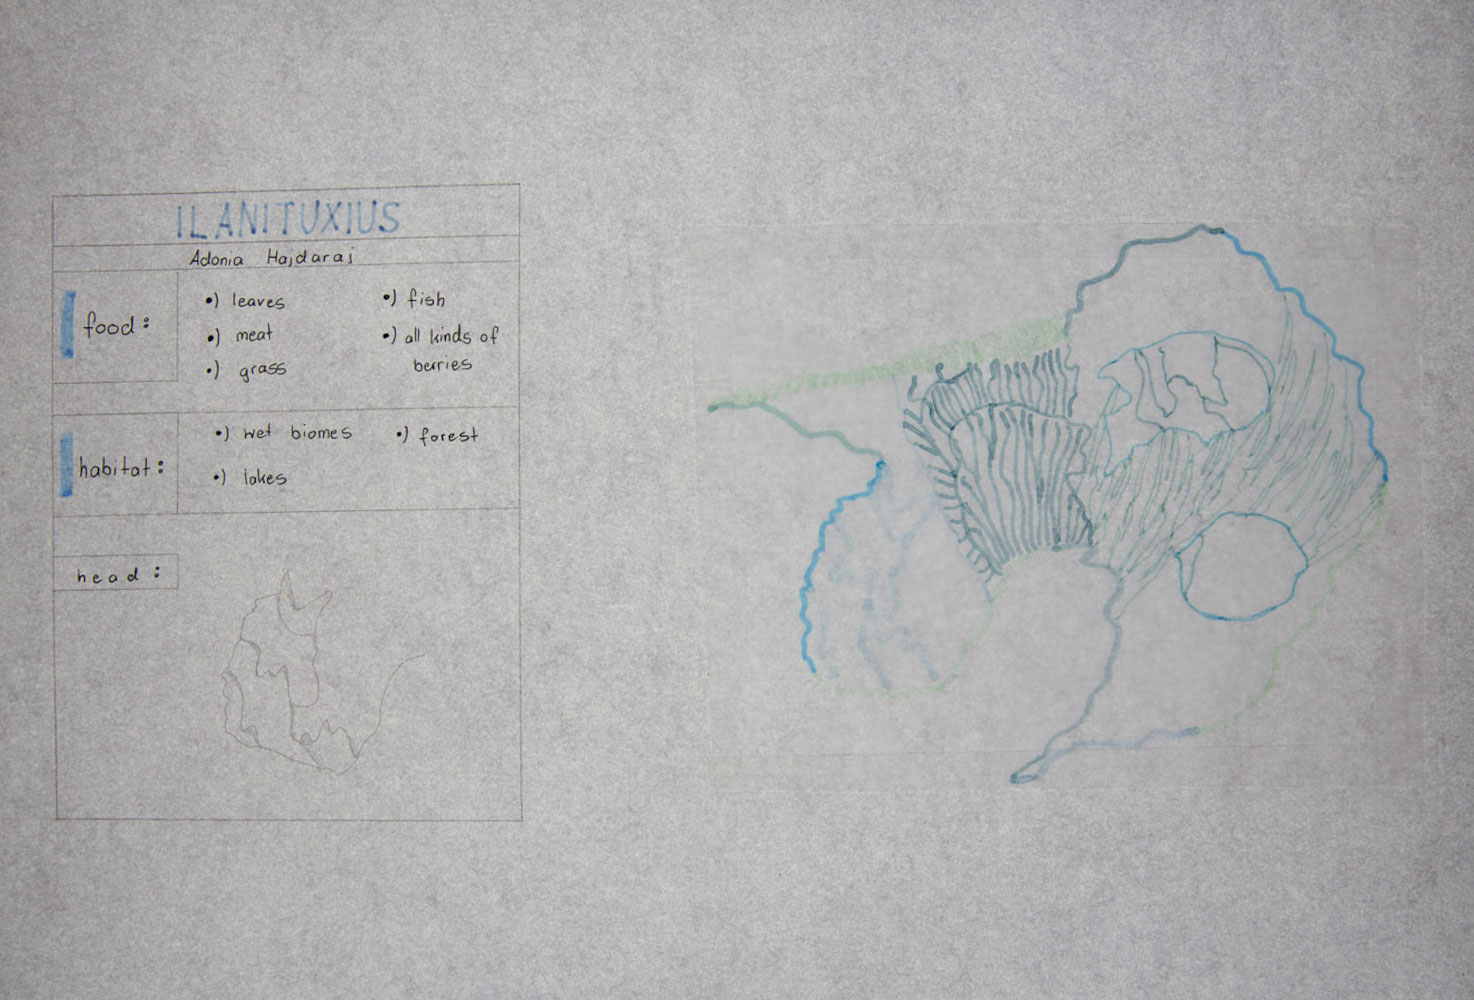 ILANITUXIUS
Adonia Hajdaraj
food:
•) leaves
•) meat
•) grass
•) fish
•) all kinds of
berries
habitat:
•) wet biomes
•) lakes
•) forest
head: